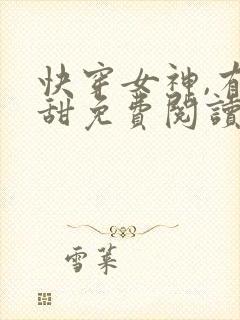 快穿女神,有
甜免費閱讀
雪葉